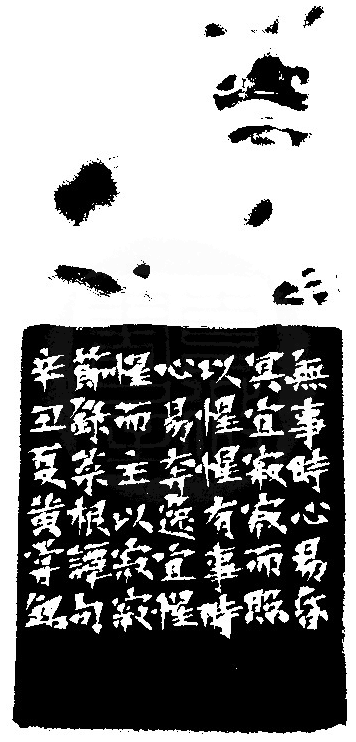 無事時心易昏
冥宜寂寂而照
以惺惺有事時
心易奔逸宜惺
惺而主以寂寂
節錄菜根譚句
辛丑夏黃銘